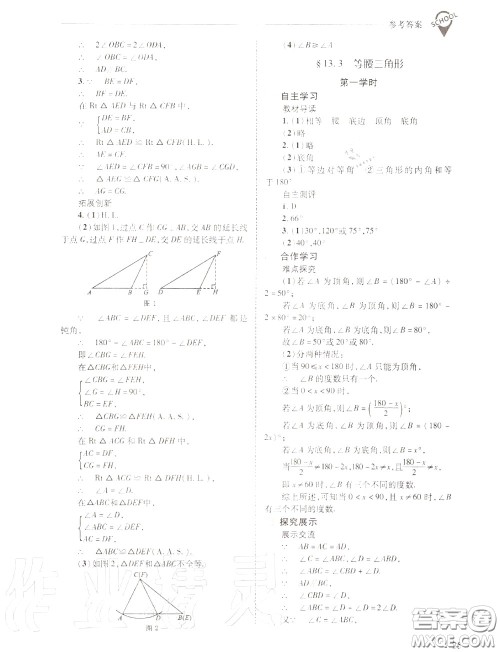 参考答案
SCHOOL
∴ 2∠OBC = 2∠ODA,
∴ ∠OBC = ∠ODA,
∴ AD∥BC.
3.∵ BE = DF,
∴ BF = DE.
在 Rt△AED 与 Rt△CFB 中,
{DE = BF,
AD = CB,
∴ Rt△AED ≌ Rt△CFB(H.L.).
∴ AE = CF.
∵ ∠AED = ∠CFB = 90°,∠AGE = ∠CGD,
∴ △AEG≌△CFG(A.A.S.).
∴ AG = CG.
拓展创新
4.(1)H.L.
(2)如图1,过点C作CG⊥AB,交AB的延长线
于点G,过点F作FH⊥DE,交DE的延长线于点H.
C F
A B G D E H
图1
∵ ∠ABC = ∠DEF,且∠ABC、∠DEF都是
钝角,
∴ 180°-∠ABC = 180°-∠DEF,
即∠CBG = ∠FEH.
在△CBG和△FEH中,
{∠CBG = ∠FEH,
∠G = ∠H = 90°,
BC = EF,
∴ △CBG≌△FEH(A.A.S.).
∴ CG = FH.
在 Rt△ACG 和 Rt△DFH 中,
{AC = DF,
CG = FH,
∴ Rt△ACG≌Rt△DFH(H.L.).
∴ ∠A = ∠D.
在△ABC和△DEF中,
{∠A = ∠D,
∠ABC = ∠DEF,
AC = DF,
∴ △ABC≌△DEF(A.A.S.).
(3)如图2,△DEF和△ABC不全等.
C(F)
A D B(E)
图2
(4)∠B≥∠A
§13.3 等腰三角形
第一学时
自主学习
教材导读
1.(1)相等 腰 底边 顶角 底角
(2)略
2.(1)略
(2)底角
(3)等边对等角 三角形的内角和等
于180°
自主测评
1.D
2.66°
3.(1)30°,120°或75°,75°
(2)40°,40°
合作学习
难点探究
(1)若∠A为顶角,则∠B=(180°-∠A)÷
2=50°;
若∠A为底角,∠B为顶角,则∠B=180°-
2×80°=20°;
若∠A为底角,∠B为底角,则∠B=80°.
故∠B=50°或20°或80°.
(2)分两种情况:
①当90≤x<180时,∠A只能为顶角.
∴ ∠B的度数只有一个.
②当0<x<90时,
若∠A为顶角,则∠B=((180-x)/2)°;
若∠A为底角,∠B为顶角,则∠B=(180-
2x)°;
若∠A为底角,∠B为底角,则∠B=x°.
当(180-x)/2≠180-2x,180-2x≠x且(180-x)/2≠x,
即x≠60时,∠B有三个不同的度数.
综上所述,可知当0<x<90,且x≠60时,
∠B有三个不同的度数.
探究展示
展示交流
∵ AB=AC=AD,
∴ ∠ABC=∠ACB,∠ABD=∠D.
∵ AD∥BC,
∴ ∠D=∠DBC.